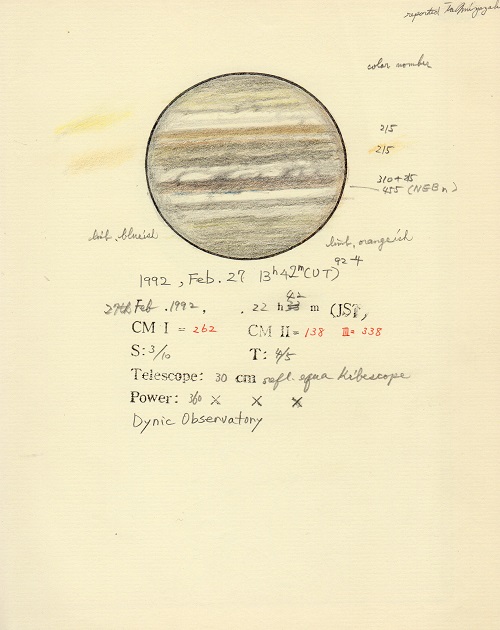 reported
color number
215
215
310+215
455 (NEB n)
limb, blueish
limb, orangeish
92-4
1992, Feb. 27 13h42m(UT)
27th Feb. 1992, . 22 h 42 m (JST)
CM I = 262 CM II= 138 III= 338
S: 3/10 T: 4/5
Telescope: 30 cm refl. equa
Power: 360 × × ×
Dynic Observatory